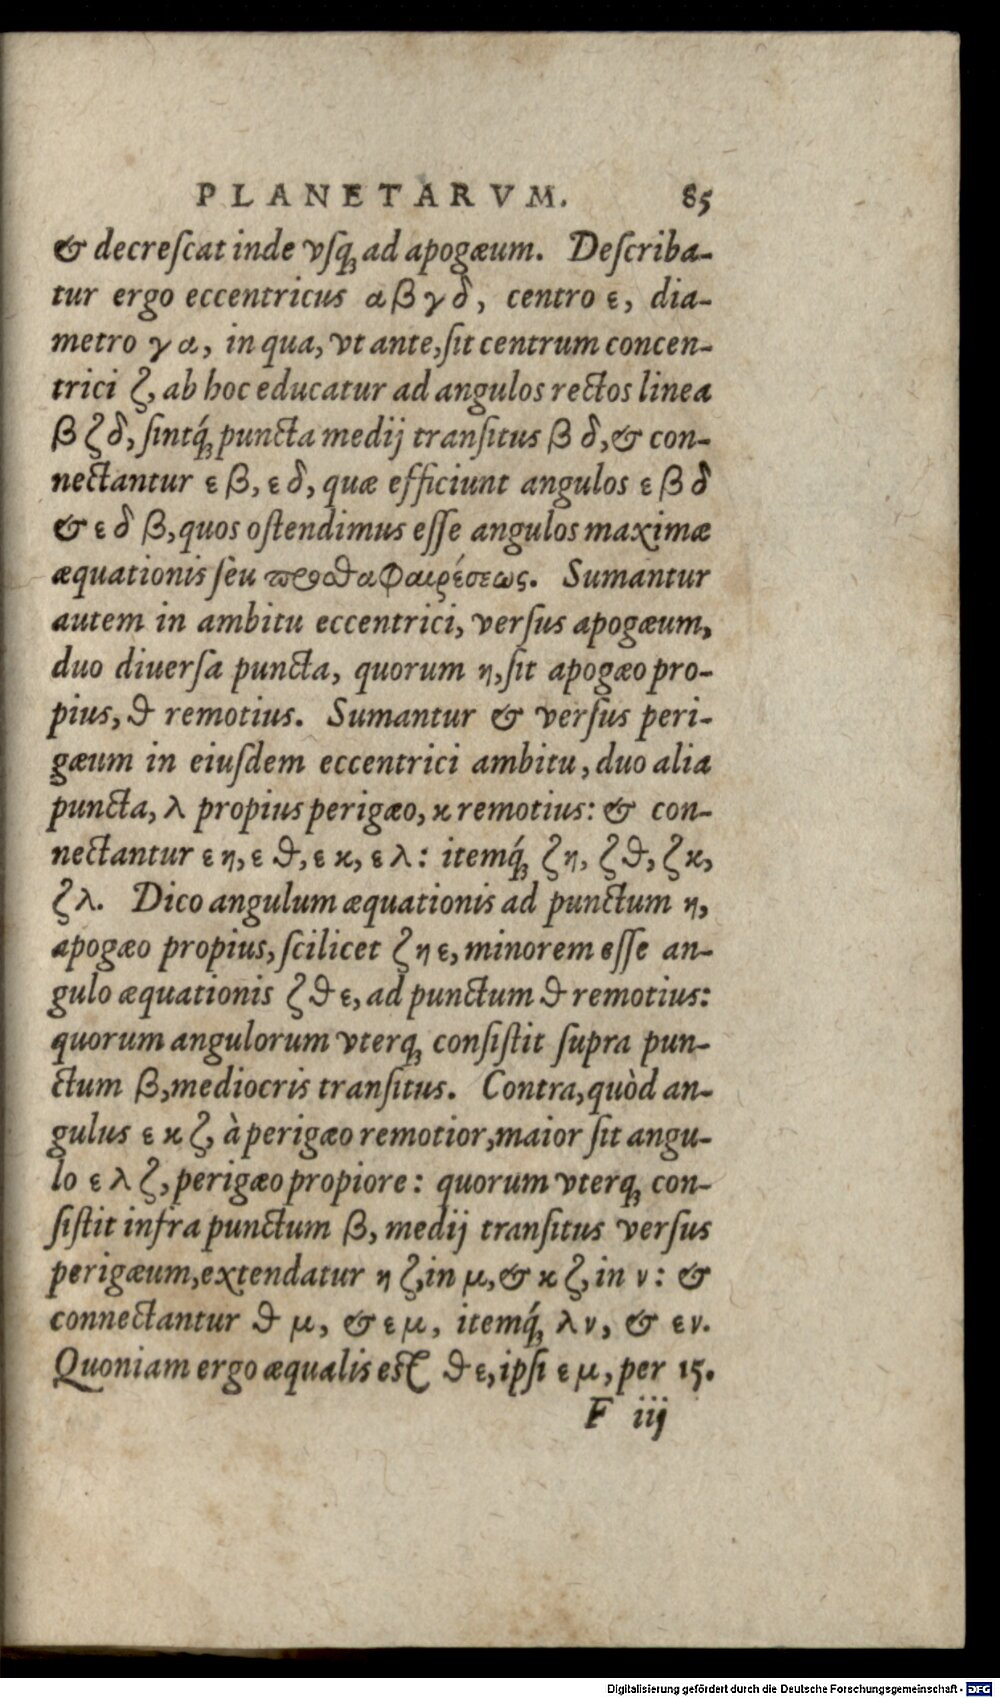 PLANETARVM. 85
& decreſcat inde vſq́; ad apogæum. Deſcriba-
tur ergo eccentricus α β γ δ, centro ε, dia-
metro γ α, in qua, vt ante, ſit centrum concen-
trici ζ, ab hoc educatur ad angulos rectos linea
β ζ δ, ſintq́; puncta medij tranſitus β δ, & con-
nectantur ε β, ε δ, quæ efficiunt angulos ε β δ
& ε δ β, quos oſtendimus eſſe angulos maximæ
æquationis ſeu προσθαφαιρέσεως. Sumantur
autem in ambitu eccentrici, verſus apogæum,
duo diuerſa puncta, quorum η, ſit apogæo pro-
pius, ϑ remotius. Sumantur & verſus peri-
gæum in eiuſdem eccentrici ambitu, duo alia
puncta, λ propius perigæo, κ remotius: & con-
nectantur ε η, ε ϑ, ε κ, ε λ: itemq́; ζ η, ζ ϑ, ζ κ,
ζ λ. Dico angulum æquationis ad punctum η,
apogæo propius, ſcilicet ζ η ε, minorem eſſe an-
gulo æquationis ζ ϑ ε, ad punctum ϑ remotius:
quorum angulorum vterq; conſiſtit ſupra pun-
ctum β, mediocris tranſitus. Contra, quòd an-
gulus ε κ ζ, à perigæo remotior, maior ſit angu-
lo ε λ ζ, perigæo propiore: quorum vterq; con-
ſiſtit infra punctum β, medij tranſitus verſus
perigæum, extendatur η ζ, in μ, & κ ζ, in ν: &
connectantur ϑ μ, & ε μ, itemq́; λ ν, & ε ν.
Quoniam ergo æqualis eſt ϑ ε, ipſi ε μ, per 15.
F iij
Digitalisierung gefördert durch die Deutsche Forschungsgemeinschaft - DFG